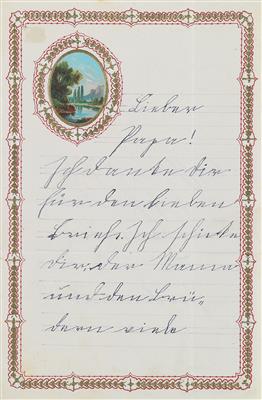 Lieber
Papa!
Ich danke dir
für den lieben
Brief. Ich schicke
dir, der Mama
und den Brü„
dern viele